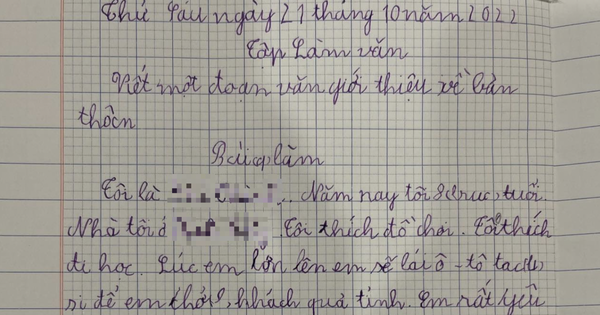 Thứ Sáu ngày 21 tháng 10 năm 2022
Tập Làm văn
Viết một đoạn văn giới thiệu về bản
thôcn
Bài làm
Tôi là ... Năm nay tôi 8 tuổi.
Nhà tôi ở Tôi thích đồ chơi. Tôi thích
đi học. Lúc em lớn lên em sẽ lái ô-tô tac
si để em chở khách quả tỉnh. Em rất yêu